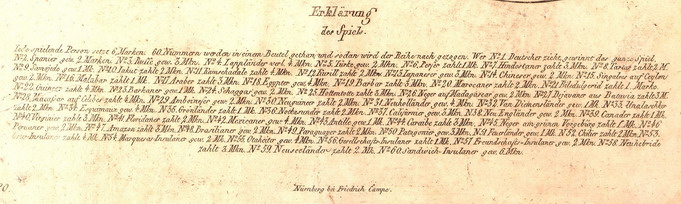 Erklärung
des Spiels.
Jede spielende Person setzt 6 Marken. 60 Nummern werden in einem Beutel gethan und sodan wird der Reihe nach gezogen. Wer No 1. Deutscher zieht, gewinnt das ganze Spiel.
No 2. Spanier, gew. 2 Marken. No 3. Russe gew. 3 Mkn. No 4. Lappländer 4 Mkn. No 5. Türke, gew. 2 Mkn. No 6. Perser zahlt 1 Mk. No 7. Hindostaner zahlt 3 Mkn. No 8. zahlt 2 M.
No 9. Samojede gew. 1 Mk. No 10. Jakut zahlt 2 Mkn. No 11. Kamschadale zahlt 4 Mkn. No 12. Kurill zahlt 2 Mkn. No 13. Japaneser gew. 3 Mkn. No 14. Chineser, gew. 2 Mkn. No 15. Singales auf Ceylon
gew. 2 Mkn. No 16. Malabar zahlt 1 Mk. No 17. Araber zahlt 3 Mkn. No 18. Egypter, gew. 4 Mkn. No 19. zahlt 3 Mkn. No 20. Maroccaner zahlt 2 Mkn. No 21. zahlt 1 Marke.
No 22. Guineer zahlt 4 Mkn. No 23. gew. 1 Mk. No 24. gew. 2 Mkn. No 25. Hottentotte zahlt 3 Mkn. No 26. Neger aus Madagascar gew. 2 Mkn. No 27. aus Batavia zahlt 3 M.
No 28. Macassar auf Celebes zahlt 4 Mkn. No 29. Amboineser gew. 2 Mkn. No 30. Neuguineer zahlt 2 Mkn. No 31. Neuholländer, gew. 4 Mkn. No 32. Van Diemensländer gew. 1 Mk. No 33. Unalaschker
zahlt 2 Mkn. No 34. gew. 4 Mkn. No 35. Grönländer zahlt 1 Mk. No 36. Nootkasunder zahlt 2 Mkn. No 37. Californier, gew. 3 Mkn. No 38. Neu Engländer, gew. 2 Mkn. No 39. Canader zahlt 1 Mk.
No 40. Virginier zahlt 3 Mkn. No 41. Floridaner zahlt 2 Mkn. No 42. Mexicaner, gew. 4 Mkn. No 43. Antille, gew. 1 Mk. No 44. Caraibe zahlt 3 Mkn. No 45. Neger am grünen Vorgebürg zahlt 1 Mk. No 46.
Peruaner, gew. 2 Mkn. No 47. Amazon zahlt 3 Mkn. No 48. Brasilianer gew. 2 Mkn. No 49. Paraguayer zahlt 2 Mkn. No 50. Patagonier, gew. 3 Mkn. No 51. Feuerländer, gew. 1 Mk. No 52. Chilier zahlt 2 Mkn. No 53.
Oster-Insulaner zahlt 4 Mk. No 54. Marquesas Insulaner gew. 2 Mkn. No 55. Otaheiter, gew. 4 Mkn. No 56. Gesellschafts-Insulaner zahlt 1 Mk. No 57. Freundschafts-Insulaner, gew. 2 Mkn. No 58. Neuhebride
zahlt 3 Mkn. No 59. Neuseeländer zahlt 2 Mkn. No 60. Sandwich-Insulaner gew. 6 Mkn.
Nürnberg bei Friedrich Campe.